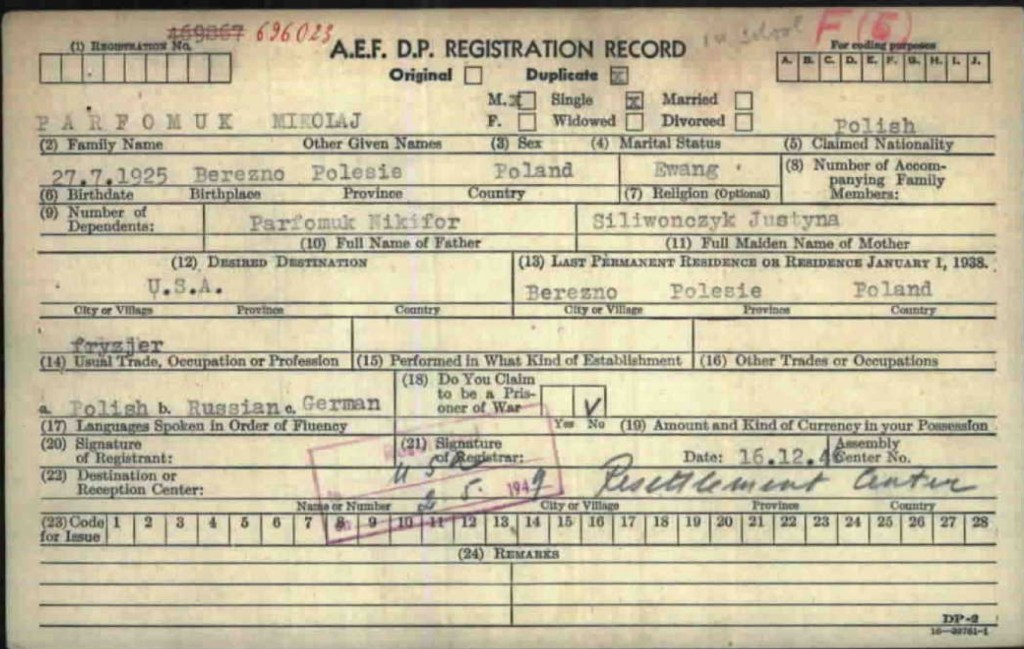 469867 696023
in school F (5)
(1) Registration No.
A.E.F. D.P. REGISTRATION RECORD
For coding purposes
A. B. C. D. E. F. G. H. I. J.
Original Duplicate X
M. X Single X Married
F. Widowed Divorced
PARFOMUK MIKOLAJ Polish
(2) Family Name Other Given Names (3) Sex (4) Marital Status (5) Claimed Nationality
27.7.1925 Berezno Polesie Poland Ewang.
(6) Birthdate Birthplace Province Country (7) Religion (Optional)
(8) Number of Accompanying Family Members:
(9) Number of Dependents:
Parfomuk Nikifor Siliwonczyk Justyna
(10) Full Name of Father (11) Full Maiden Name of Mother
(12) Desired Destination (13) Last Permanent Residence or Residence January 1, 1938.
U.S.A. Berezno Polesie Poland
City or Village Province Country City or Village Province Country
fryzjer
(14) Usual Trade, Occupation or Profession (15) Performed in What Kind of Establishment (16) Other Trades or Occupations
(18) Do You Claim to be a Prisoner of War
a. Polish b. Russian c. German
Yes No
(17) Languages Spoken in Order of Fluency (19) Amount and Kind of Currency in your Possession
(20) Signature of Registrant: (21) Signature of Registrar: Date: 16.12.46 Assembly Center No.
(22) Destination or Reception Center: USA 2.5. 1949 Resettlement Center
Name or Number City or Village Province Country
(23) Code for Issue 1 2 3 4 5 6 7 8 9 10 11 12 13 14 15 16 17 18 19 20 21 22 23 24 25 26 27 28
(24) Remarks
DP-2
16-39781-1